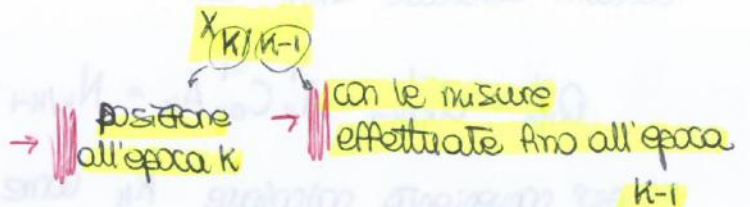 X K/K-1
→ posizione
all'epoca K
→ con le misure
effettuate fino all'epoca
K-1